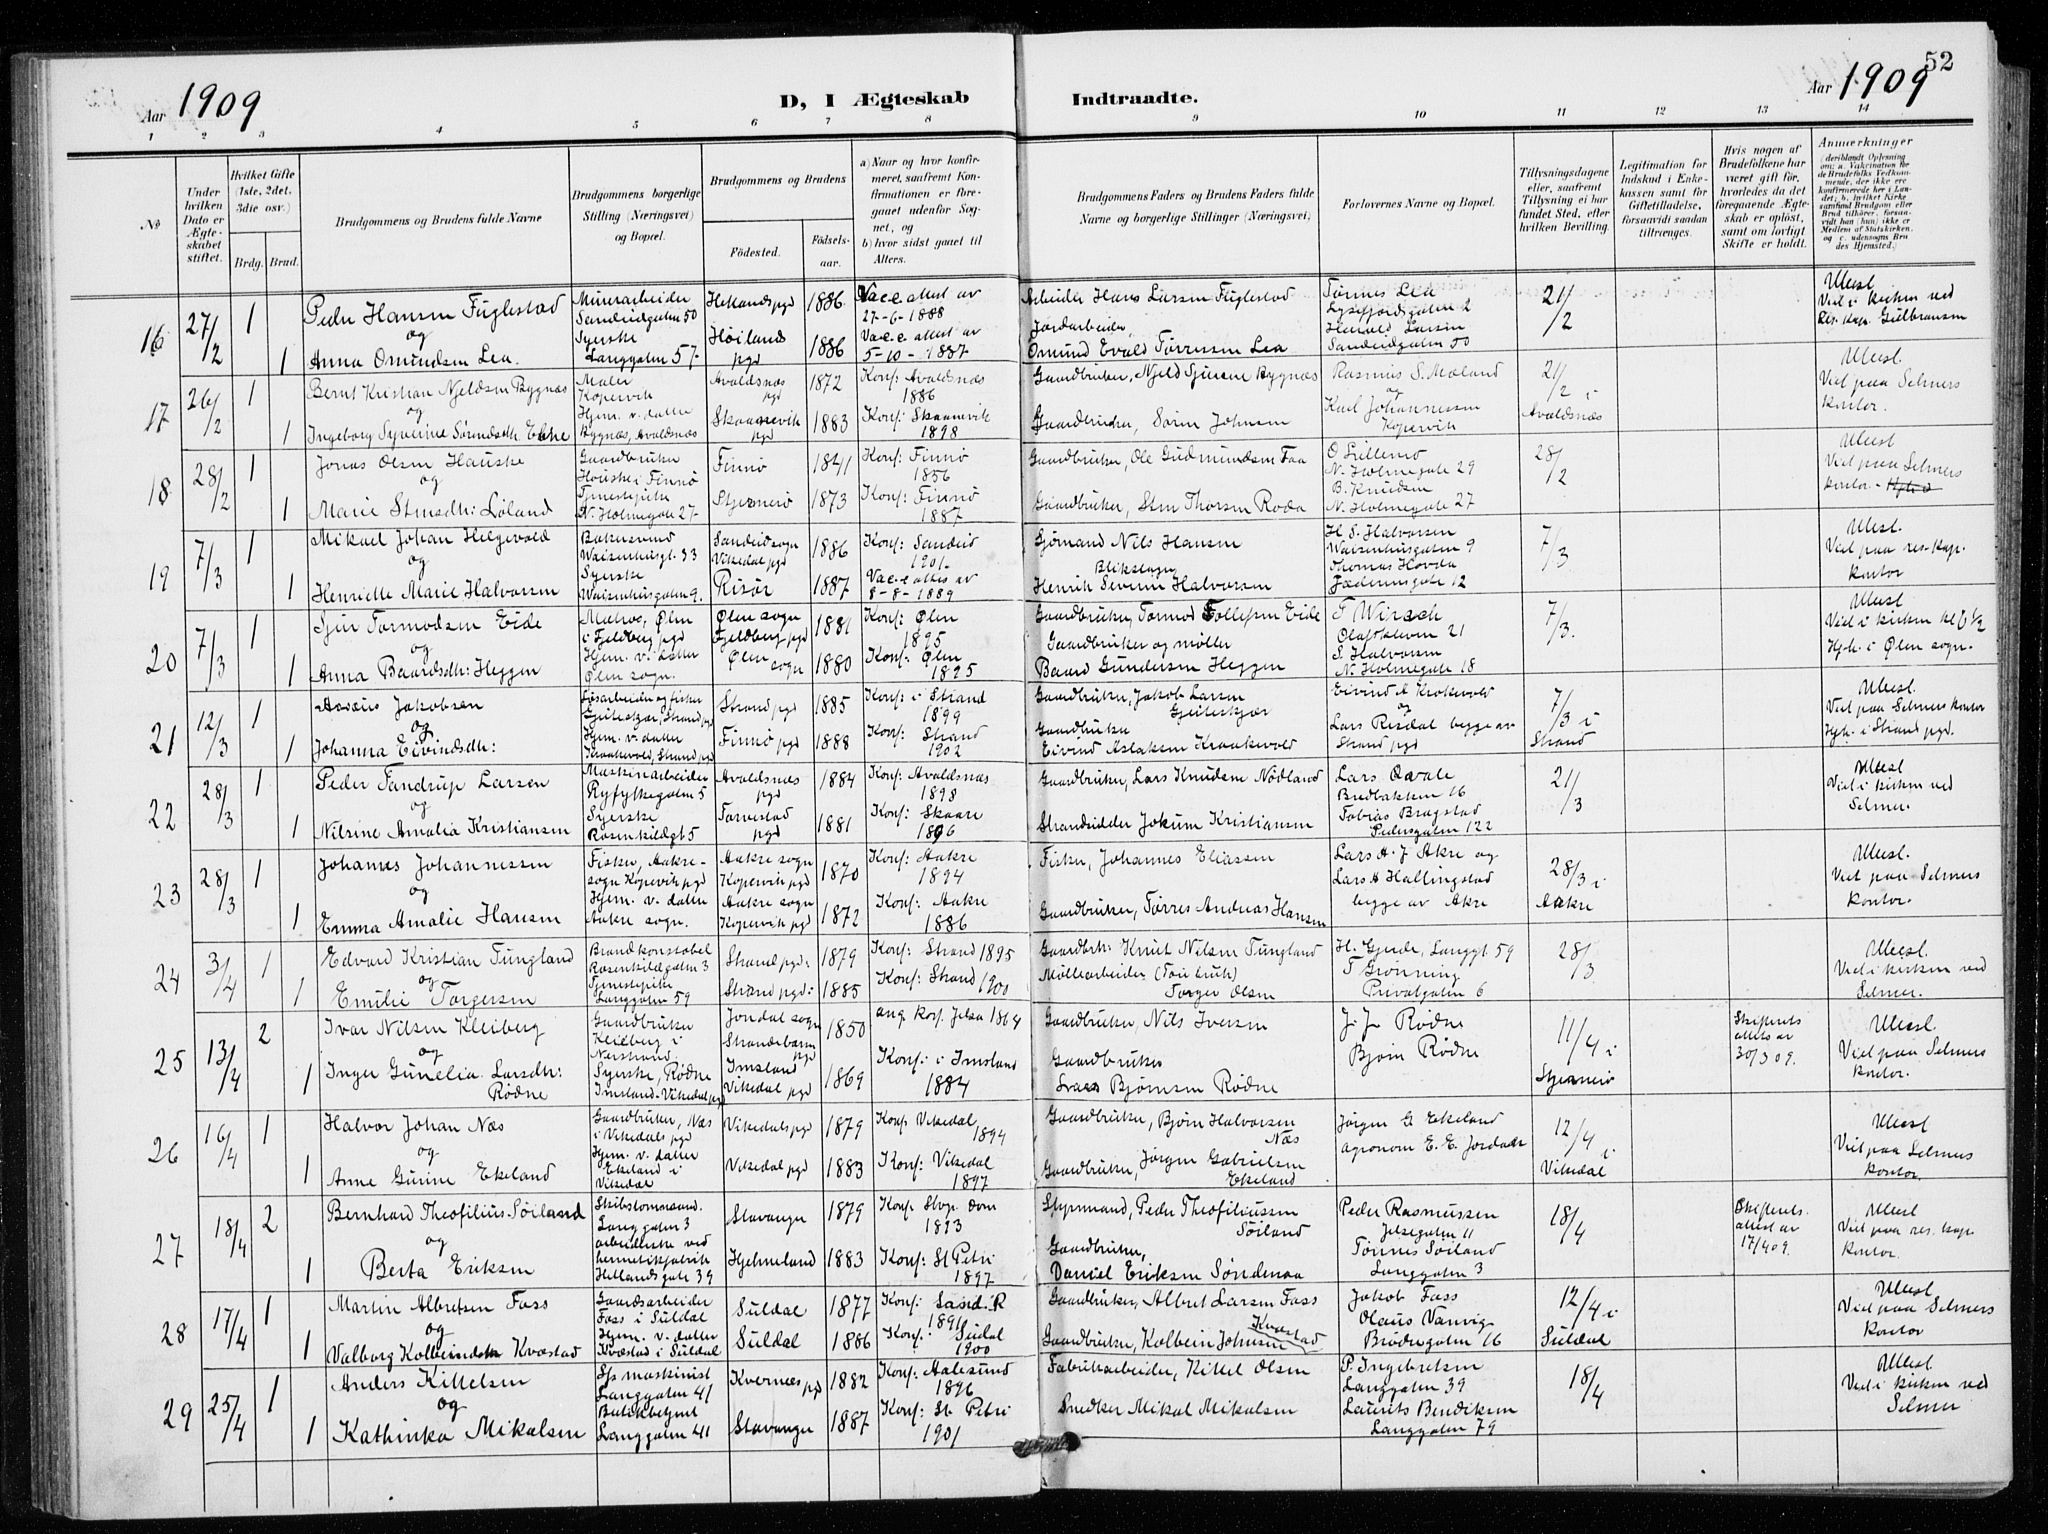 52
Aar 1909
D, I Ægteskab Indtraadte.
Aar 1909
1 2 3 4 5 6 7 8 9 10 11 12 13 14
No
Under hvilken Dato er Ægteskabet stiftet.
Hvilket Gifte (1ste, 2det, 3die osv.)
Brdg. Brud.
Brudgommens og Brudens fulde Navne
Brudgommens borgerlige Stilling (Næringsvei) og Bopæl.
Brudgommens og Brudens
Fødested.
Fødselsaar.
a) Naar og hvor konfirmeret, saafremt Konfirmationen er foregaaet udenfor Sognet, og
b) hvor sidst gaaet til Alters.
Brudgommens Faders og Brudens Faders fulde Navne og borgerlige Stillinger (Næringsvei)
Forlovernes Navne og Bopæl.
Tillysningsdagene eller, saafremt Tillysning ei har fundet Sted, efter hvilken Bevilling.
Legitimation for Indskud i Enkekassen samt for Giftetilladelse, forsaavidt sandan tiltrænges.
Hvis nogen af Brudefolkene har været gift før, hvorledes da det foregaaende Ægteskab er opløst, samt om lovligt Skifte er holdt.
Anmærkninger
16 27/2 1 Peder Hansen Fuglestad Murerarbeider Sandeidgaten 50 Hetlands pgd 1886 Vacc. attest av 27-6-1888 Arbeider Hans Larsen Fuglestad Tønnes Lea Lysefjordsgaten 2 21/2 Viel i kirken ved Res. kap. Gulbransen
og
1 Anna Omundsen Lea. Syerske Langgaten 57 Høilands pgd 1886 Vacc. attest av 5-10-1887 Jordarbeider Omund Evald Tørressen Lea Harald Larsen Sandeidgaten 50
17 26/2 1 Bernt Kristian Njeldsen Bygnæs Maler Kopervik Avaldsnæs pgd 1872 Konf: Avaldsnæs 1886 Gaardbruker, Njeld Sjursen Bygnæs Rasmus S. Mæland 21/2 i Avaldsnæs Viel paa Selmers kontor.
og
1 Ingeborg Syverine Sørensdtr. Hjem. v. datter Bygnæs, Avaldsnæs Skaanevik pgd 1883 Konf: Skaanevik 1898 Gaardbruker, Søren Johnsen Karl Johannessen Kopervik
18 28/2 1 Jonas Olsen Hauske Gaardbruker Hauske i Finnø Finnø 1841 Konf: Finnø 1856 Gaardbruker, Ole Gudmundsen Faa O Lillemo N. Holmegate 29 28/2 Viel paa Selmers kontor
og
1 Marie Stensdtr: Løland Tjenestepike N. Holmegate 27 Stjernerø 1873 Konf: Finnø 1887 Gaardbruker, Sten Thorsen Roda B. Knudsen N. Holmegate 27
19 7/3 1 Mikael Johan Helgevold Bakersvend Waisenhusgt. 33 Sandeid sogn Vikedal pgd 1886 Konf: Sandeid 1901. Sjømand Nils Hansen H. S. Halvorsen Waisenhusgaten 9 7/3. Viel paa res. kap. kontor
og
1 Henriette Marie Halvorsen Syerske Waisenhusgaten 9. Risør 1887 Vacc. attest av 8-8-1889 Blikslager Henrik Severin Halvorsen Thomas Hovda Jædernsgate 12
20 7/3 1 Sjur Tormodsen Eide Matros, Ølen i Fjeldberg pgd Ølen sogn Fjeldberg pgd 1881 Konf: Ølen 1895 Gaardbruker, Tormod Tollefsen Eide F Wirsch Olafskleven 21 7/3. Viel i kirken kl 6 1/2
og
1 Anna Baardsdtr: Heggen Hjem. v. datter Ølen sogn. Ølen sogn 1880 Konf: Ølen 1895 Gaardbruker og møller Baard Gundersen Heggen S. Halvorsen N. Holmegate 18 Hjh. i Ølen sogn.
21 12/3 1 Asseus Jakobsen Løsarbeider og fisker Geiteskjær, Strand pgd Strand pgd 1885 Konf: i Strand 1899 Gaardbruker, Jakob Larsen Geiteskjær Eivind A Krokevold 7/3 i Strand Viel paa Selmers kontor
og
1 Johanna Eivindsdtr: Hjem. v. datter Kraakevold, Strand pgd Finnø pgd 1888 Konf: Strand 1902 Gaardbruker Eivind Aslaksen Kraakevold Lars Risdal begge av Strand pgd Hjh. i Strand pgd.
22 28/3 1 Peder Tandrup Larsen Maskinarbeider Ryfylkegaten 5 Avaldsnæs pgd 1884 Konf: Avaldsnæs 1898 Gaardbruker, Lars Knudsen Nødland Lars Qvale Bredbakken 16 21/3 Viel i kirken ved Selmer.
og
1 Nilsine Amalia Kristiansen Syerske Rosenkildegt 5 Torvestad pgd 1881 Konf: Skaare 1896 Strandsidder Jokum Kristiansen Tobias Brogstad Pedersgaten 122
23 28/3 1 Johannes Johannessen Fisker, Aakre sogn Kopervik pgd Aakre sogn Kopervik pgd 1870 Konf: Aakre 1894 Fisker, Johannes Eliassen Lars A. J Akre og 28/3 i Aakre Viel paa Selmers kontor.
og
1 Emma Amalie Hansen Hjem. v. datter Aakre sogn. Aakre sogn Kopervik pgd 1872 Konf: Aakre 1886 Gaardbruker, Tørres Andreas Hansen Lars H Hallingstad begge av Akre
24 3/4 1 Edvard Kristian Tungland Brandkonstabel Rosenkildegaten 3 Strand pgd: 1879 Konf: Strand 1895 Gaardbrk: Knut Nilsen Tungland H. Gjerde, Langgt. 59 28/3 Viel i kirken ved Selmer.
og
1 Emilie Torgersen Tjenestepike Langgaten 59 Strand pgd: 1885 Konf: Strand 1900 Møllearbeider Torger Olsen T Grønning Privatgaten 6
25 13/4 2 Ivar Nilsen Kleiberg Gaardbruker Kleiberg i Nerstrand Jondal sogn Strandebarm pgd 1850 ang. konf. Jelsa 1864 Gaardbruker, Nils Iversen J. J. Rødne 11/4 i Stjernerø Skifterets attest av 30/3 09. Viel paa Selmers kontor.
og
1 Inger Gunelia Larsdtr: Rødne Syerske, Rødne Imsland-Vikedal pgd Imsland Vikedal pgd 1869 Konf: i Imsland 1884 Gaardbruker Lars Bjørnsen Rødne Bjørn Rødne
26 16/4 1 Halvor Johan Næs Gaardbruker, Næs i Vikedals pgd Vikedals pgd 1879 Konf: Vikedal 1894 Gaardbruker, Bjørn Halvorsen Næs Jørgen G Ekeland 12/4 i Vikedal Viel paa Selmers kontor.
og
1 Anne Gurine Ekeland Hjem. v. datter Ekeland i Vikedal Vikedal pgd 1883 Konf: Vikedal 1897 Gaardbruker, Jørgen Gabrielsen Ekeland agronom E. E. Jordadr
27 18/4 2 Bernhard Theofilius Søiland Skibstømmermand. Langgaten 3 Stavanger 1879 Konf. Stvg. dom 1893 Styrmand, Peder Theofiliussen Søiland Peder Rasmussen Jelsegaten 11 18/4 Skifterets. attest av 17/4 09. Viel paa res. kap. kontor.
og
1 Berta Eriksen arbeiderske ved hermetikfabrik Hetlandsgate 39 Hjelmeland 1883 Konf: St Petri 1897 Gaardbruker, Daniel Eriksen Søndenaa Tønnes Søiland Langgaten 3
28 17/4 1 Martin Albretsen Foss Gaardsarbeider Foss i Suldal Suldal 1877 Konf: Sand. R 1891 Gaardbruker, Albret Larsen Foss Jakob Foss 12/4 i Suldal Viel paa Selmers kontor
og
1 Valborg Kolbeinsdtr Kvæstad Hjem. v. datter Kvæstad i Suldal Suldal 1886 Konf: Suldal 1900 Gaardbruker, Kolbein Johnsen Kvæstad Olaus Vanvig Brødregaten 16
29 25/4 1 Anders Kittelsen Sfs maskinist Langgaten 41 Kvernes pgd 1882 Konf: Aalesund 1896 Fabrikarbeider, Kittel Olsen P. Ingebretsen Langgaten 39 18/4 Viel i kirken ved Selmer
og
1 Kathinka Mikalsen Butikbetjent Langgaten 41 Stavanger 1887 Konf: St Petri 1901 Snedker Mikal Mikalsen Laurits Bendiksen Langgaten 79